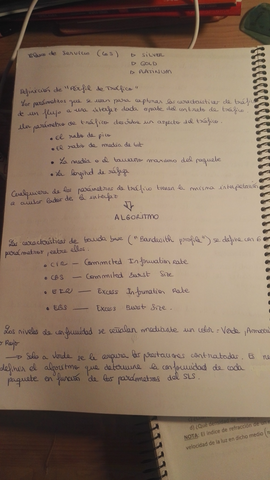 Clases de Servicio (CoS) ▷ SILVER
▷ GOLD
▷ PLATINIUM
Definición de "Perfil de Tráfico"
Los parámetros que se usan para capturar las características de tráfico
de un flujo a una interfaz dada aparte del contrato de tráfico
Un parámetro de tráfico describe un aspecto del tráfico
• El ratio de pico
• El ratio de medio de
• La media o el tamaño máximo del paquete
• La longitud de ráfaga
Cualquiera de los parámetros de tráfico tienen la misma interpretación
a ambos lados de la interfaz
⇓
ALGORITMO
Las características de ancho banda ("Bandwidth profile") se define en
parámetros, entre ellos:
• CIR — Committed Information rate
• CBS — Committed Burst Size
• EIR — Excess Information Rate
• EBS — Excess Burst Size.
Los niveles de conformidad se señalan mediante un color - Verde, Amarillo
Rojo
→ Sólo a Verde se le asegura las prestaciones contratadas. Es
definir el algoritmo que determine la conformidad de cada
paquete en función de los parámetros del SLS.
a) ¿Qué
NOTA: El índice de refracción de
velocidad de la luz en dicho medio